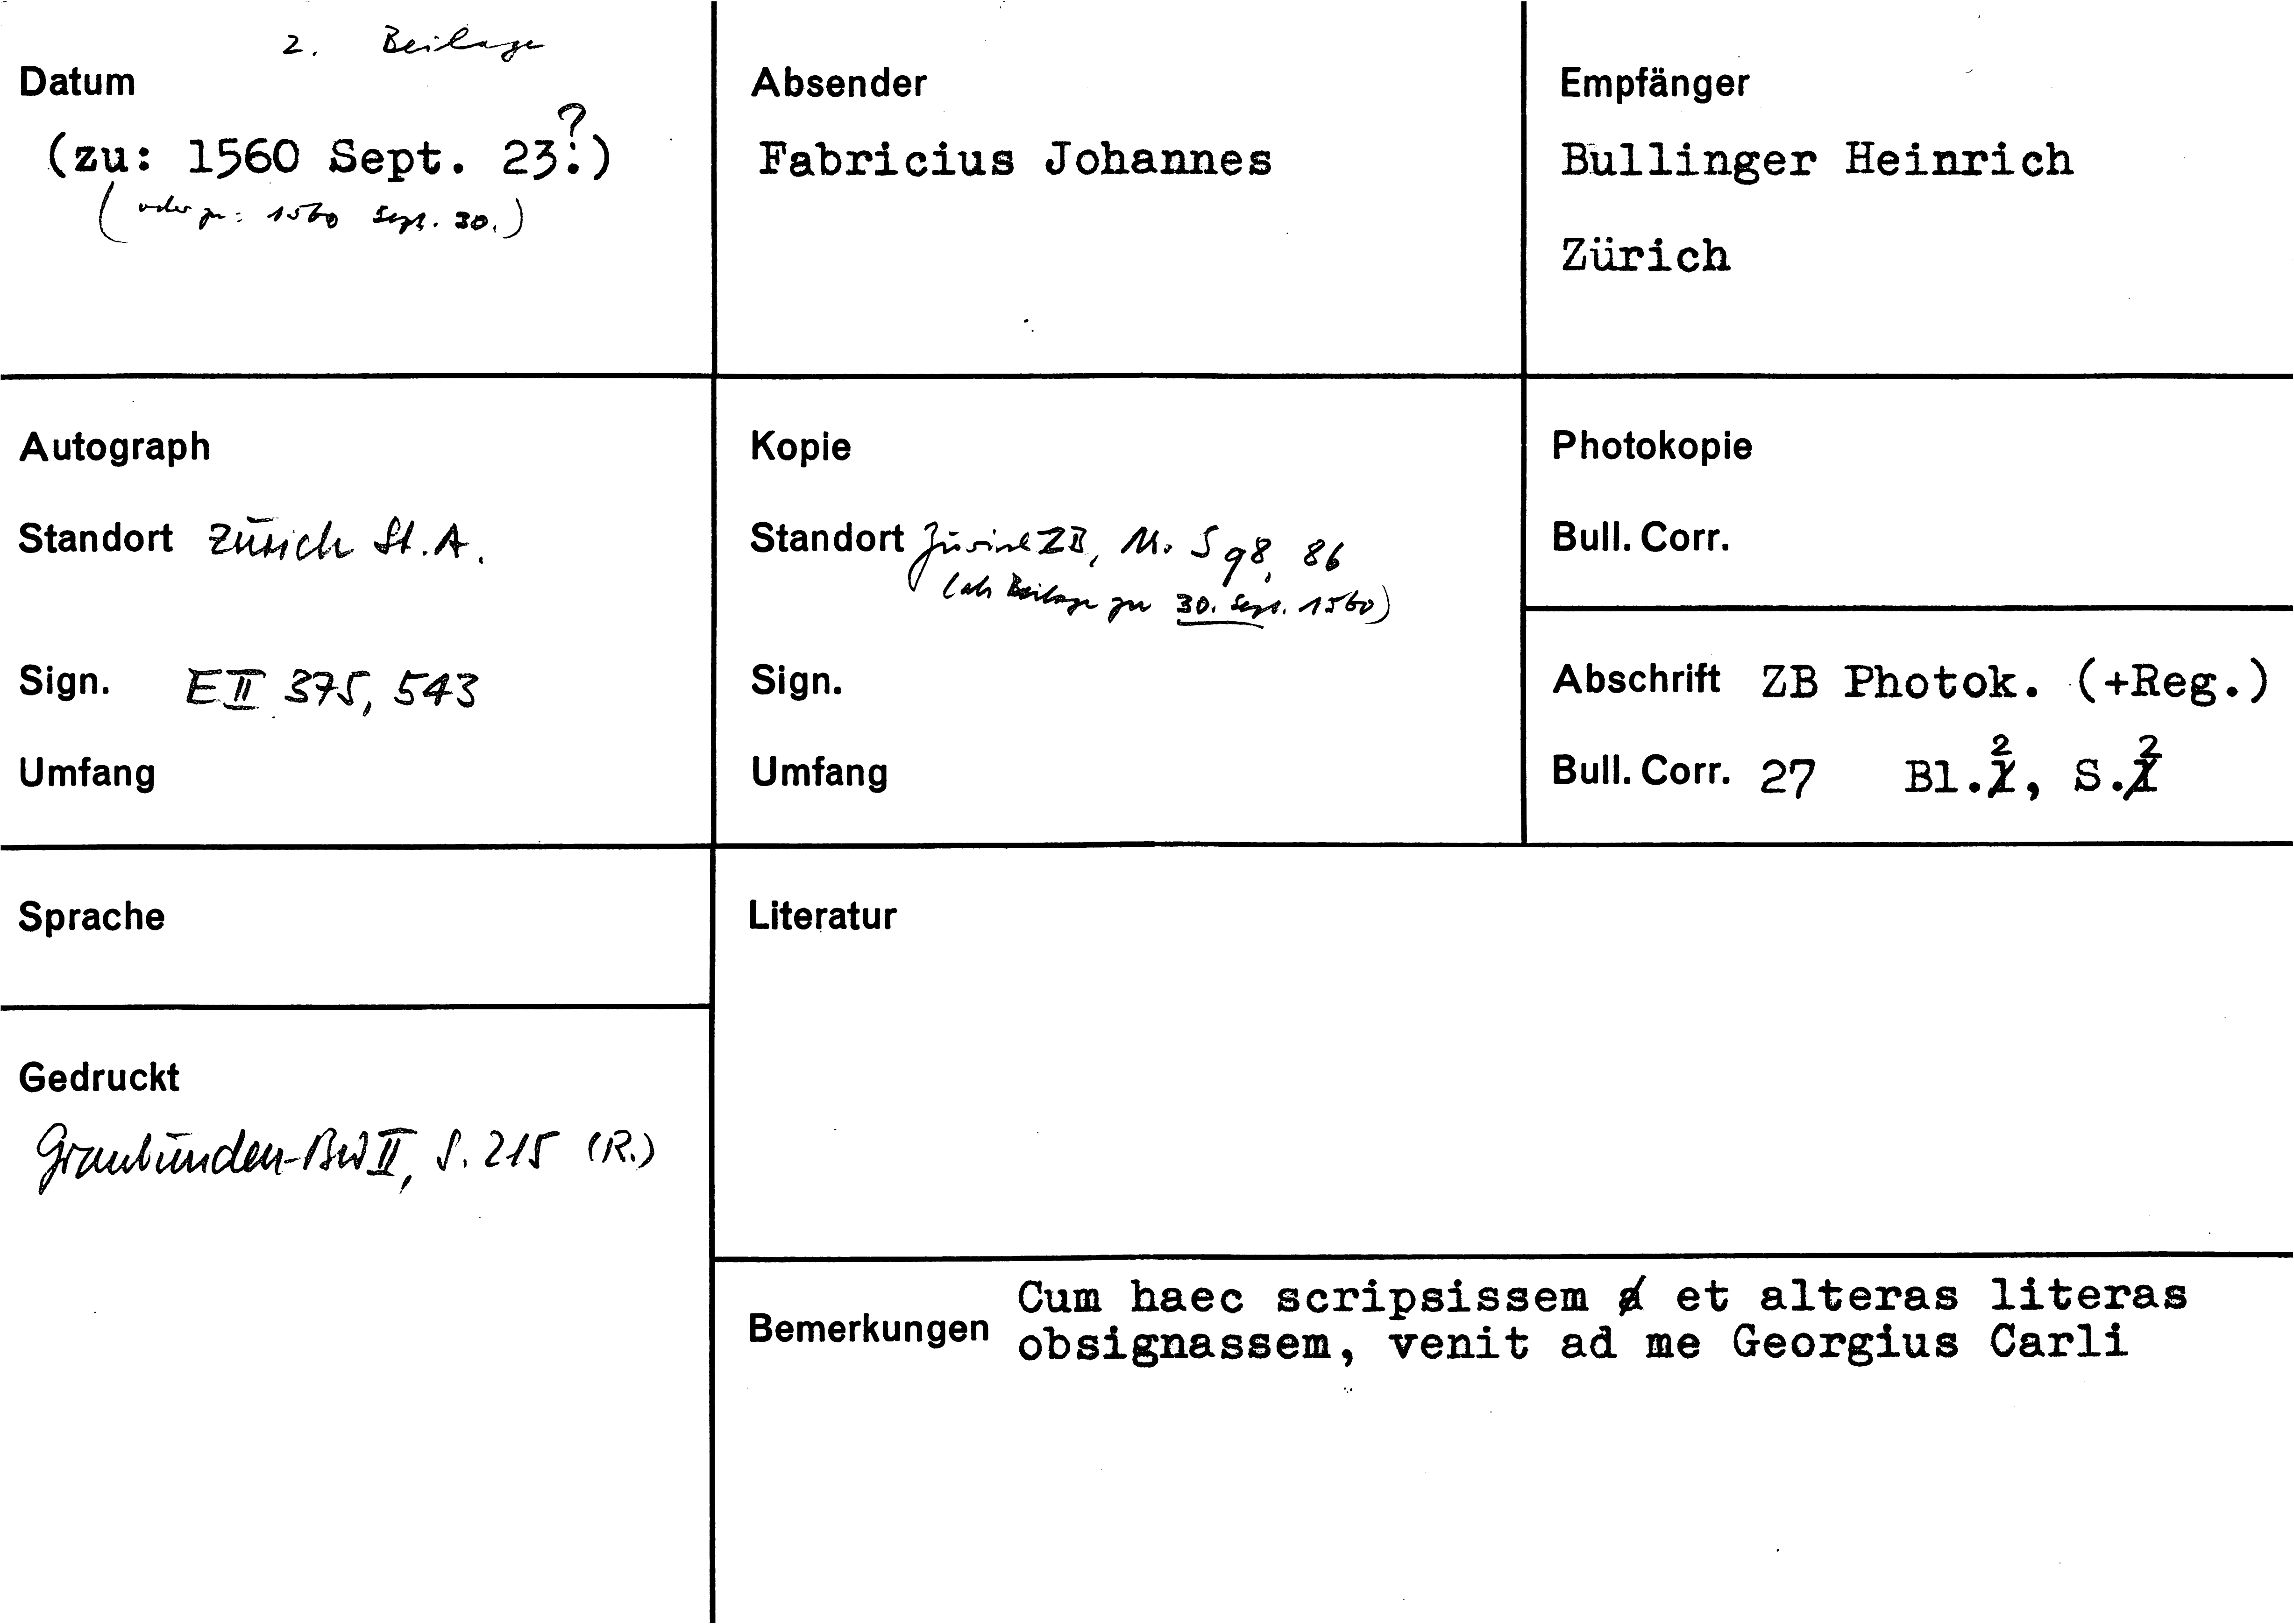 2. Beilage
Datum
(zu: 1560 Sept. 23.?)
(oder zu: 1560 Sept. 30.)
Absender
Fabricius Johannes
Empfänger
Bullinger Heinrich
Zürich
Autograph
Standort Zürich St.A.
Sign. E II 375, 543
Umfang
Kopie
Standort Zürich ZB, Ms. S 98, 86
(als Beilage zu 30. Sept. 1560)
Sign.
Umfang
Photokopie
Bull. Corr.
Abschrift ZB Photok. (+Reg.)
Bull. Corr. 27 Bl. 2, S. 2
Sprache
Gedruckt
Graubünden-BW II, S. 215 (R.)
Literatur
Bemerkungen
Cum haec scripsissem et alteras literas
obsignassem, venit ad me Georgius Carli